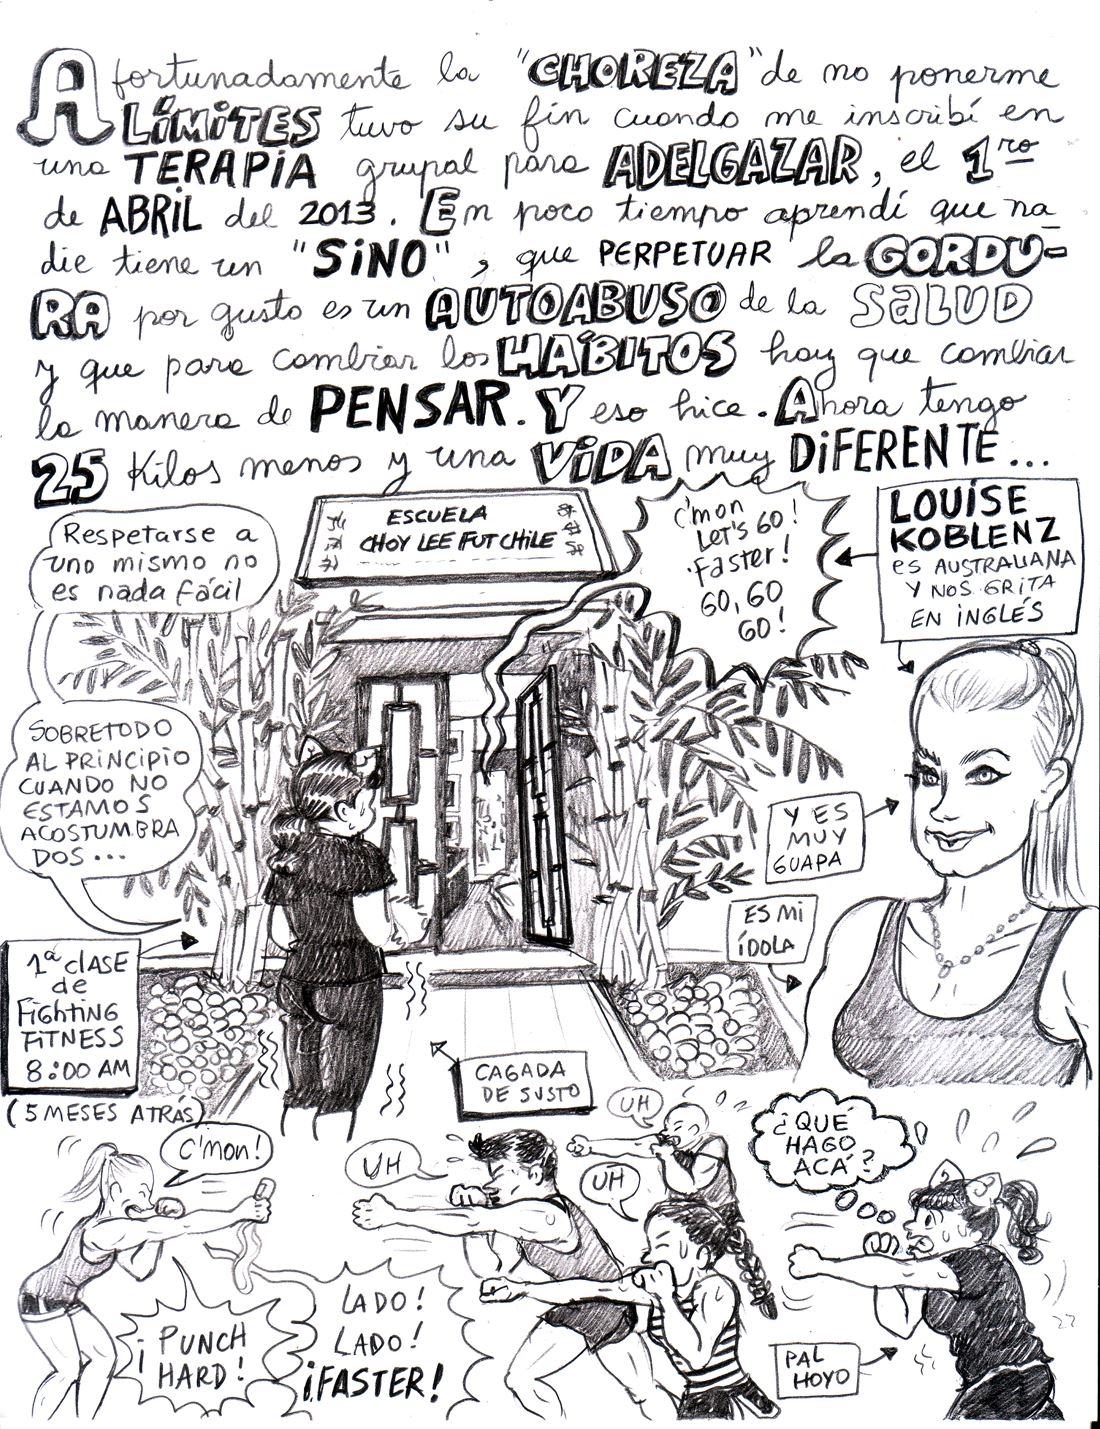 Afortunadamente la "CHOREZA" de no ponerme
LÍMITES tuvo su fin cuando me inscribí en
una TERAPIA grupal para ADELGAZAR, el 1ro
de ABRIL del 2013. En poco tiempo aprendí que na-
die tiene un "SINO", que PERPETUAR la GORDU-
RA por gusto es un AUTOABUSO de la SALUD
y que para cambiar los HÁBITOS hay que cambiar
la manera de PENSAR. Y eso hice. Ahora tengo
25 Kilos menos y una VIDA muy DIFERENTE...
Respetarse a
uno mismo no
es nada fácil
ESCUELA
CHOY LEE FUT CHILE
C'mon
Let's GO!
Faster!
GO, GO
GO!
LOUISE
KOBLENZ
es AUSTRALIANA
Y NOS GRITA
EN INGLÉS
SOBRETODO
AL PRINCIPIO
CUANDO NO
ESTAMOS
ACOSTUMBRA
DOS...
Y ES
MUY
GUAPA
ES MI
ÍDOLA
1ª CLASE
de
FigHtiNG
FITNESS
8:00 AM
(5 MESES ATRÁS)
CAGADA
DE SUSTO
C'mon!
UH
UH
UH
¿QUÉ
HAGO
ACÁ?
¡PUNCH
HARD!
LADO!
LADO!
¡FASTER!
PAL
HOYO
27